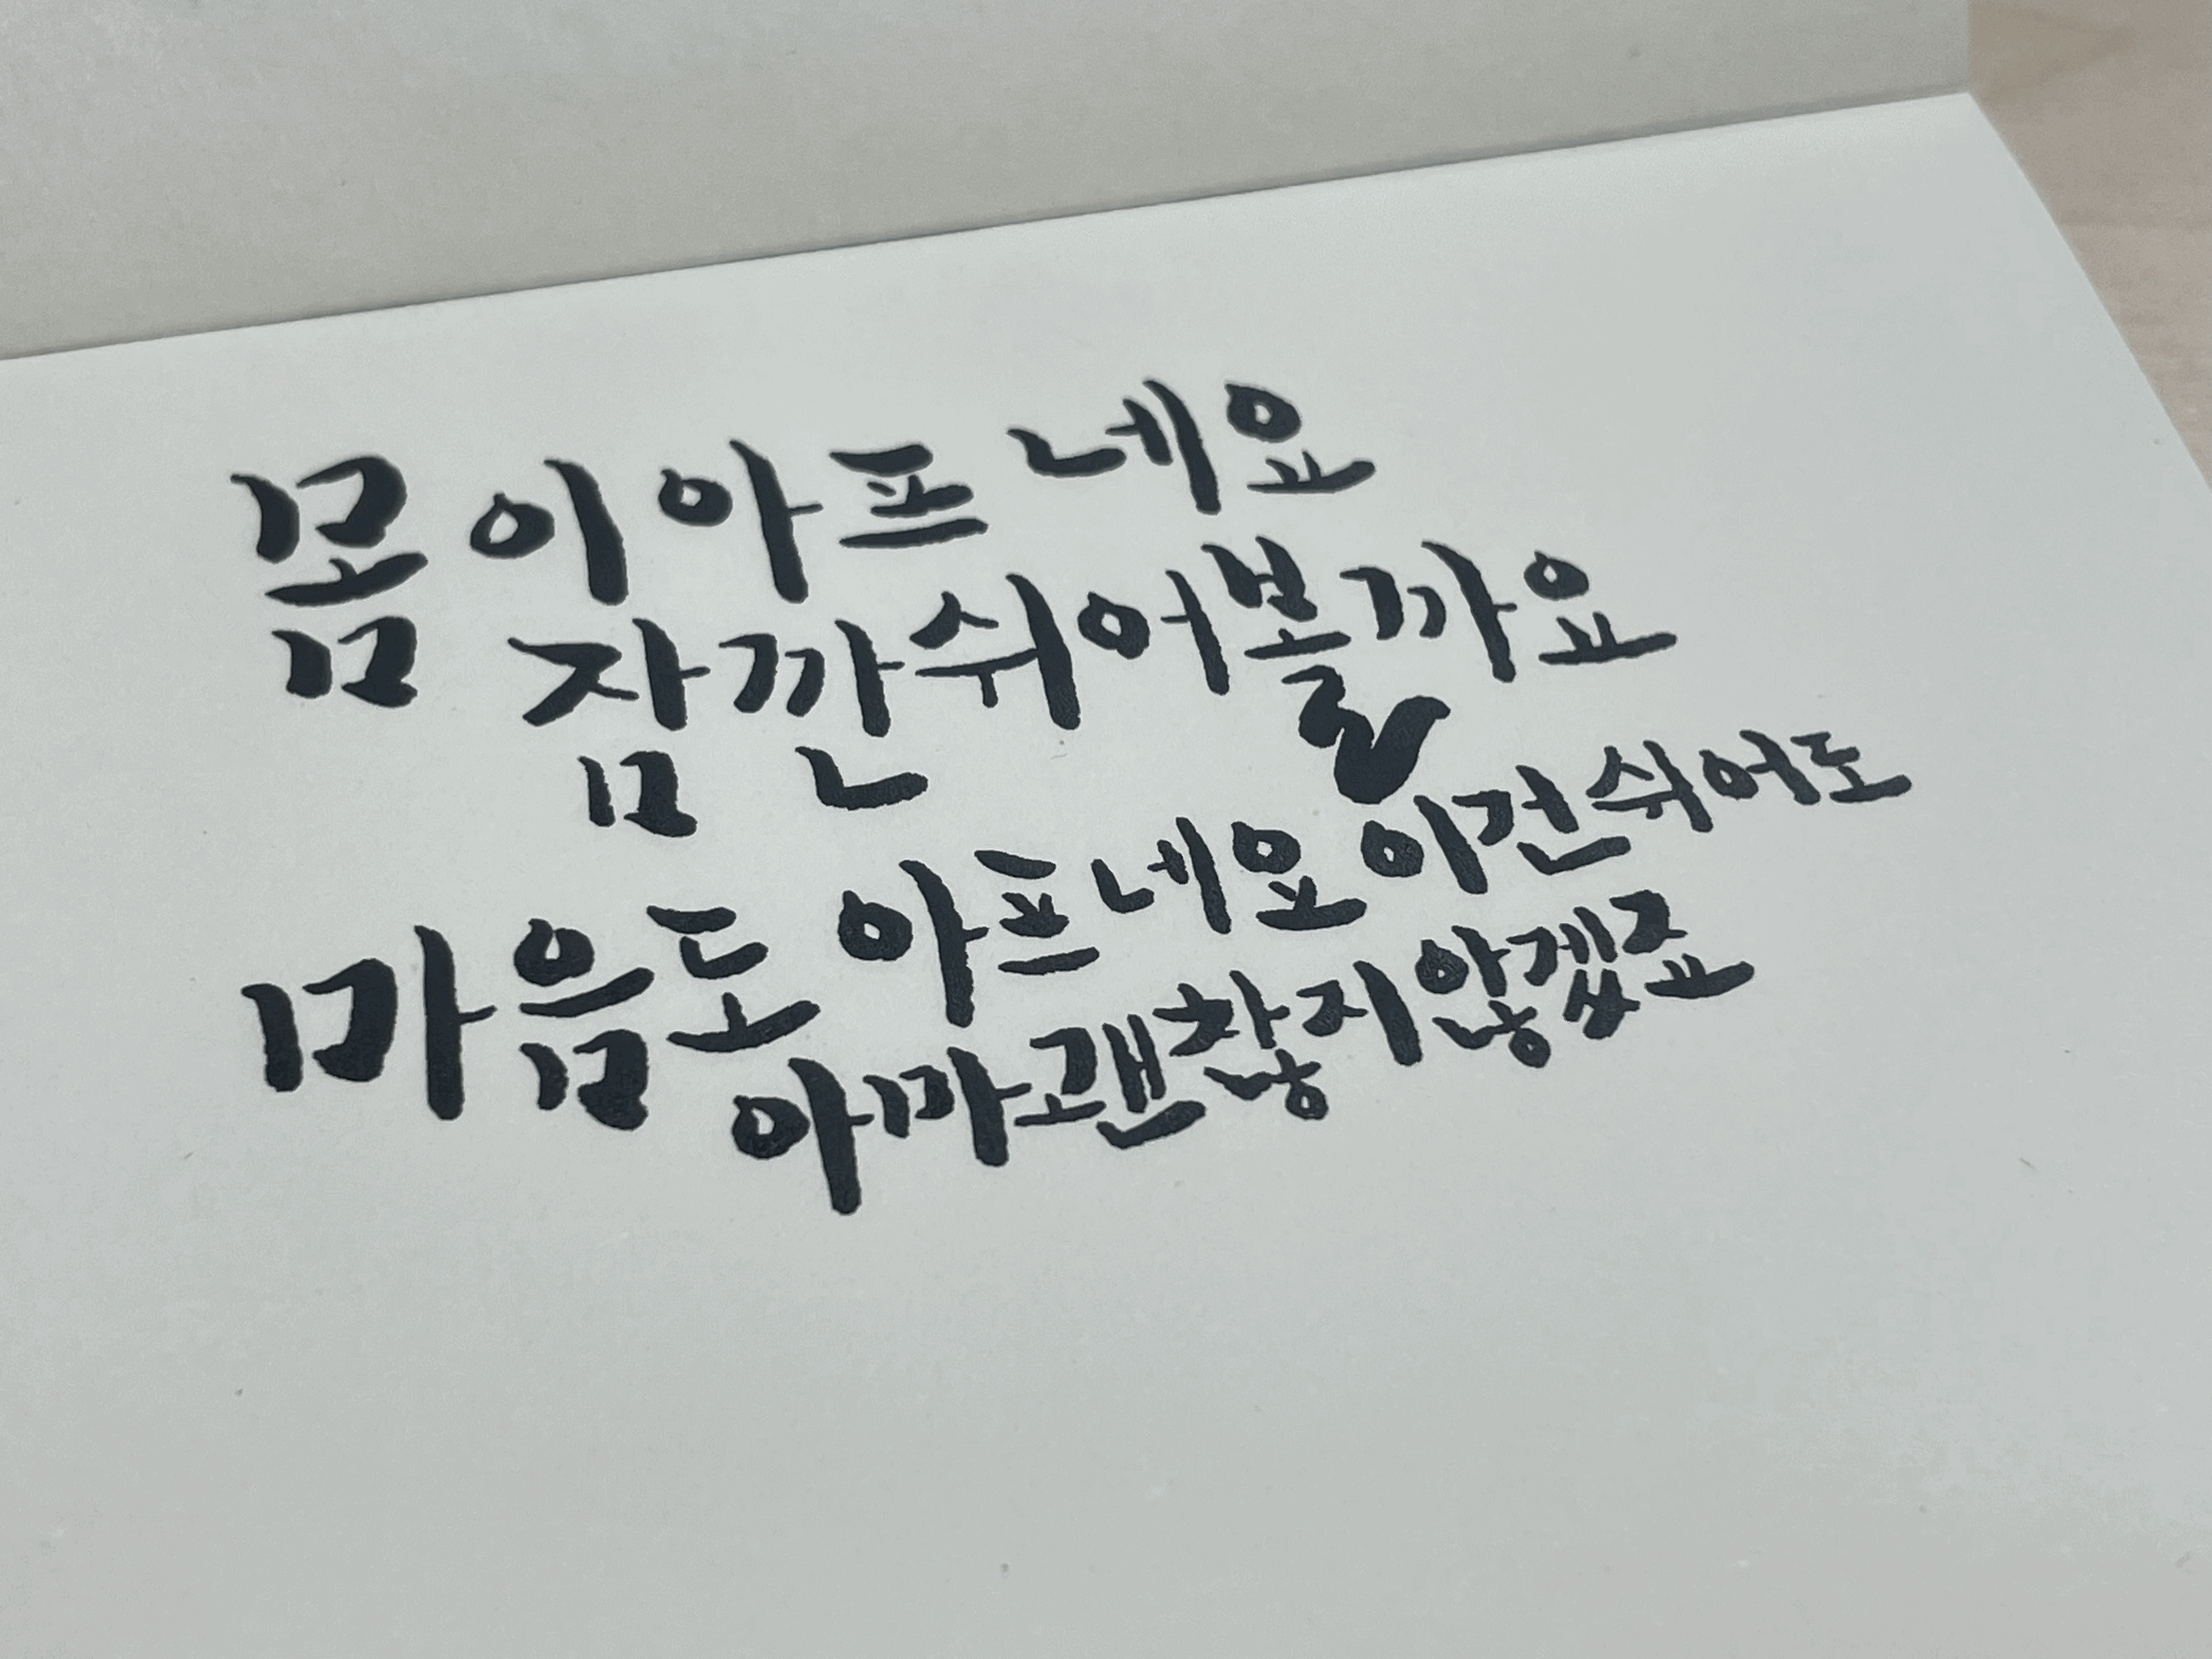 몸이 아프네요
잠깐 쉬어볼까요
마음도 아프네요 이건 쉬어도
아마 괜찮지 않겠죠